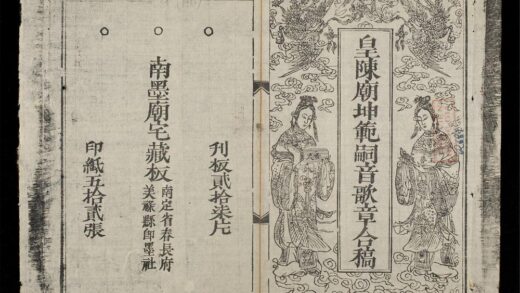 皇陳廟坤範嗣音歌章合稿
刊板貳拾柒片
南墨廟宅藏板
南定省春長府
美祿縣即墨社
印紙五拾貳張